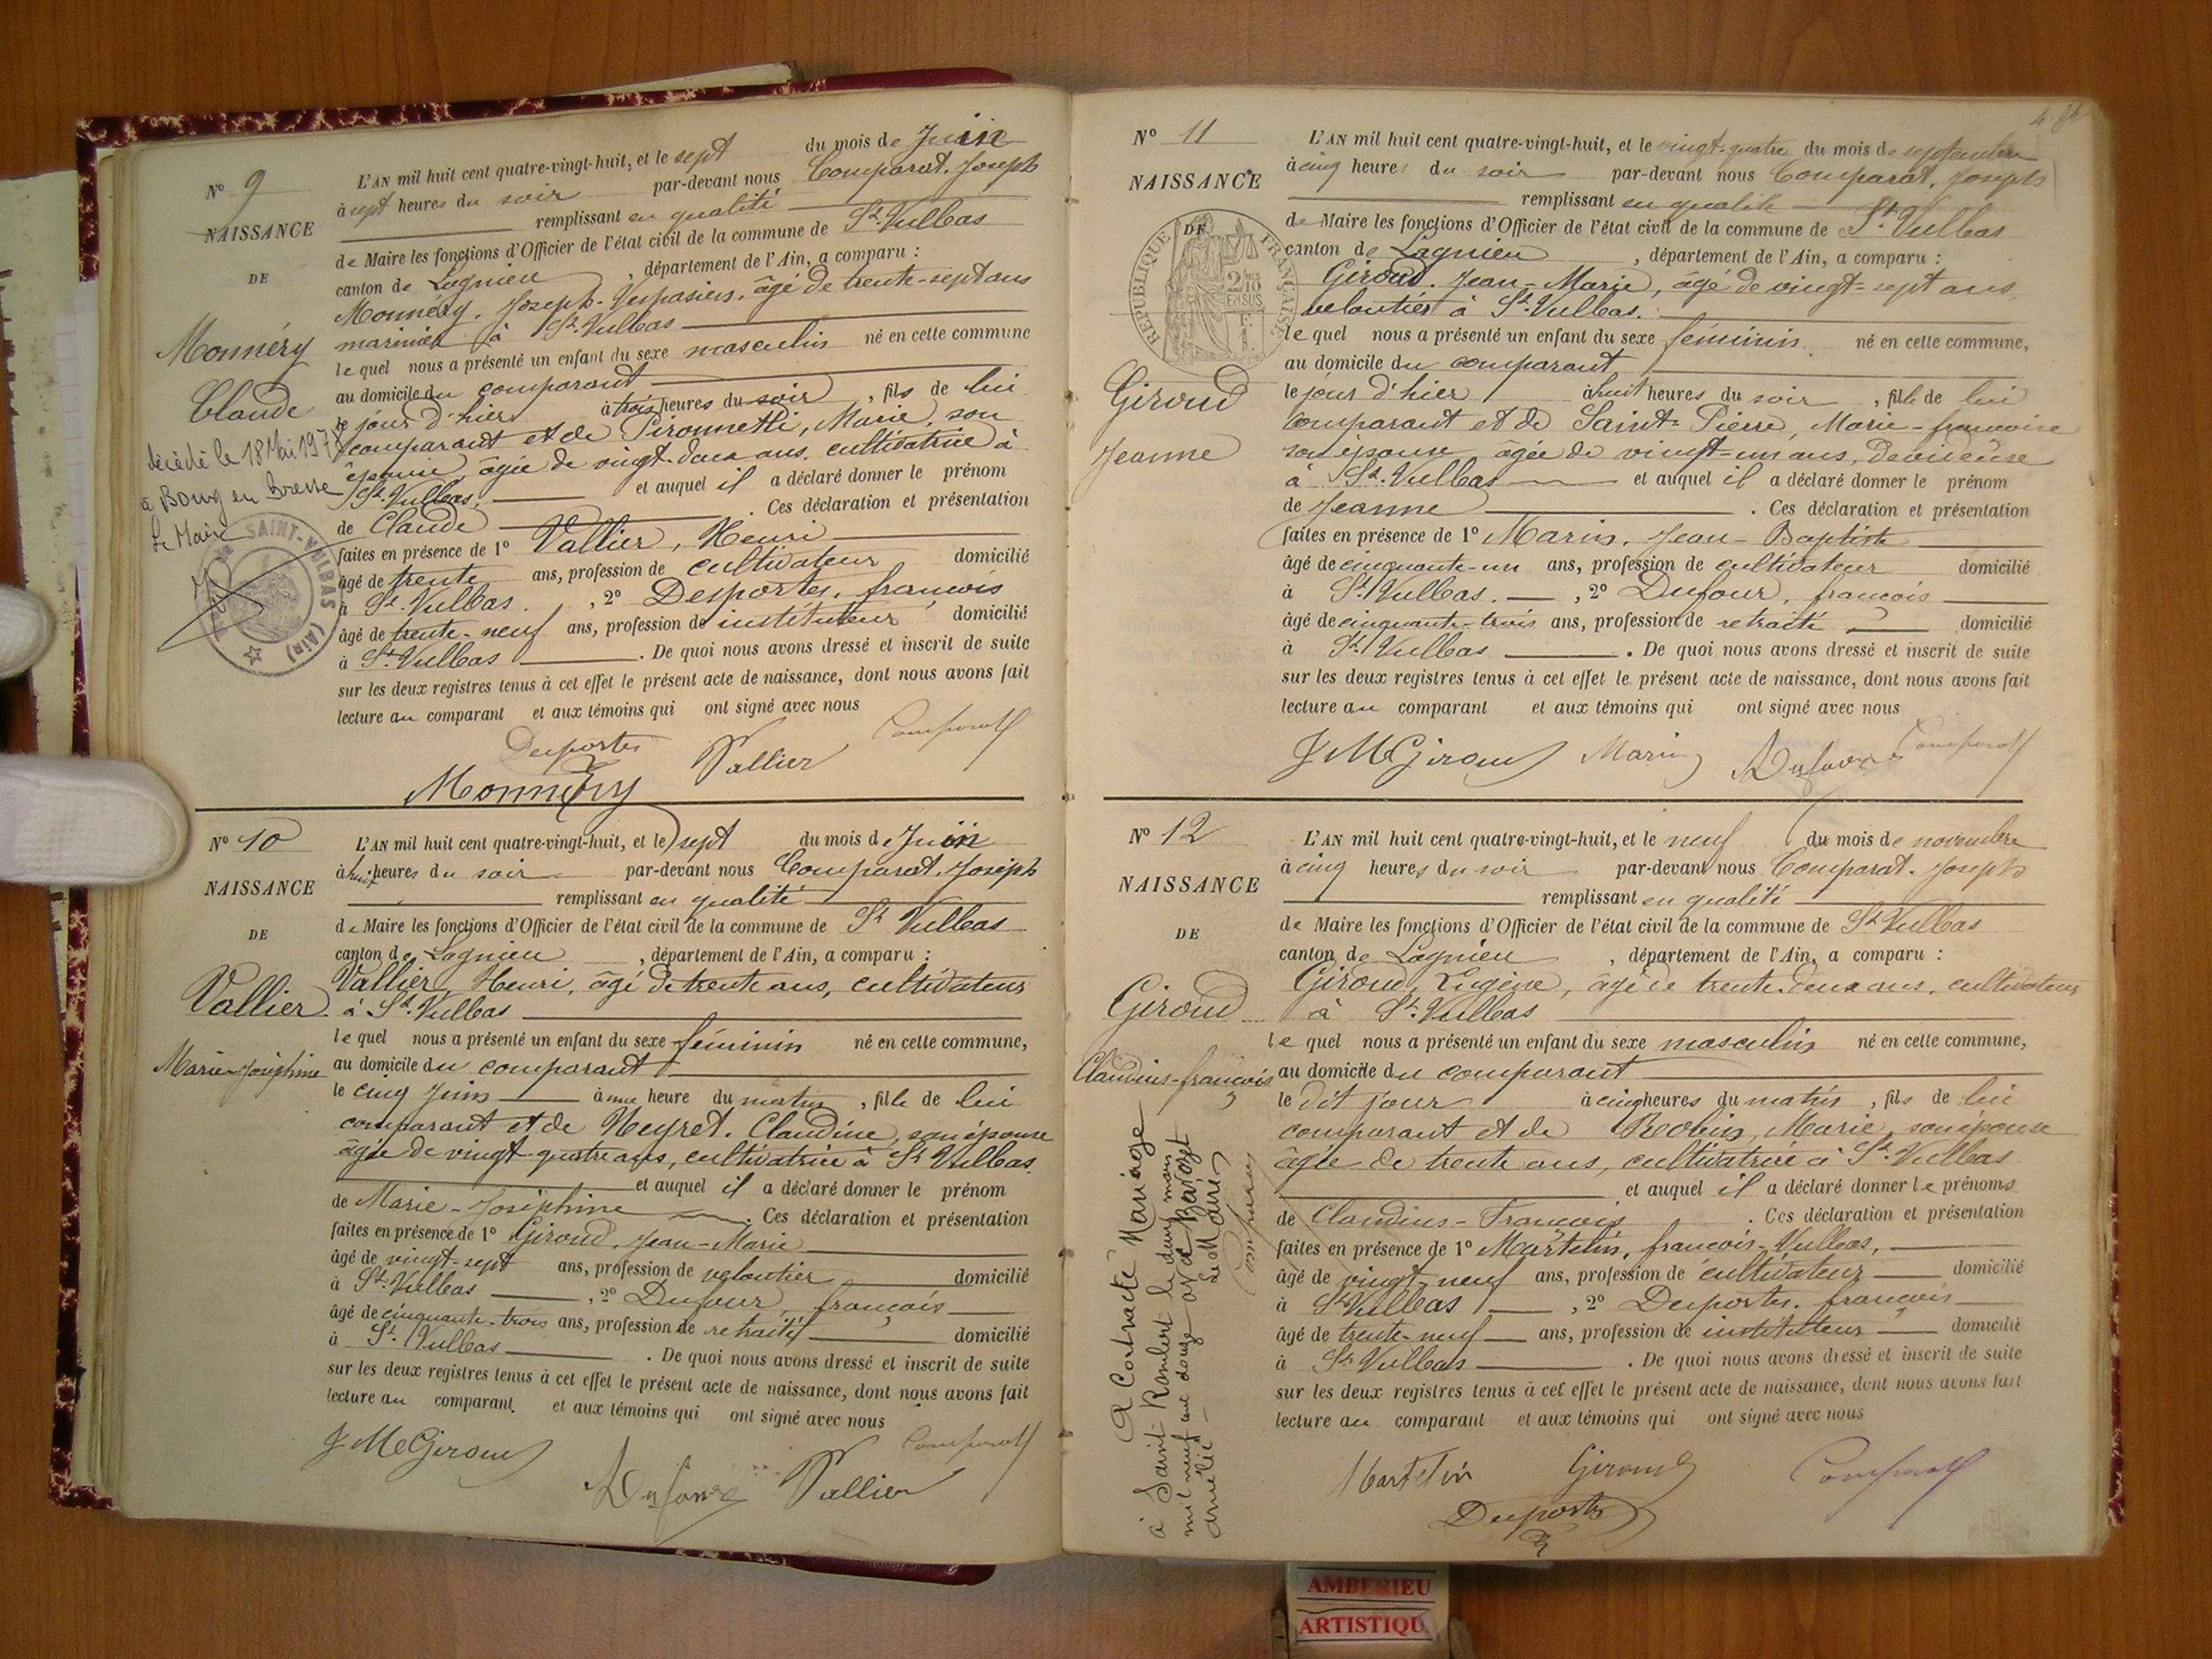 N° 9
NAISSANCE
DE
Monnéry
Claude
décédé le 18 Mai 197
à Bourg en Bresse
Le Maire
SAINT-VULBAS (Ain)
L'AN mil huit cent quatre-vingt-huit, et le sept du mois de Juin
à sept heures du soir par-devant nous Comparat. Joseph
remplissant en qualité
de Maire les fonctions d'Officier de l'état civil de la commune de St. Vulbas
canton de Lagnieu, département de l'Ain, a comparu :
Monnéry. Joseph-Vespasien, âgé de trente-sept ans
marinier à St. Vulbas
le quel nous a présenté un enfant du sexe masculin né en cette commune
au domicile du comparant
le jour d'hier à trois heures du soir, fils de lui
comparant et de Pironnetti, Marie, son
épouse, âgée de vingt-deux ans, cultivatrice à
St. Vulbas, et auquel il a déclaré donner le prénom
de Claude. Ces déclaration et présentation
faites en présence de 1° Vallier, Henri
âgé de trente ans, profession de cultivateur domicilié
à St. Vulbas, 2° Desportes. françois
âgé de trente-neuf ans, profession de instituteur domicilié
à St. Vulbas. De quoi nous avons dressé et inscrit de suite
sur les deux registres tenus à cet effet le présent acte de naissance, dont nous avons fait
lecture au comparant et aux témoins qui ont signé avec nous
Desportes Vallier Comparat
Monnéry
N° 10
NAISSANCE
DE
Vallier
Marie-Joséphine
L'AN mil huit cent quatre-vingt-huit, et le sept du mois de Juin
à huit heures du soir par-devant nous Comparat. Joseph
remplissant en qualité
de Maire les fonctions d'Officier de l'état civil de la commune de St Vulbas
canton de Lagnieu, département de l'Ain, a comparu :
Vallier, Henri, âgé de trente ans, cultivateur
à St. Vulbas
le quel nous a présenté un enfant du sexe féminin né en cette commune,
au domicile du comparant
le cinq Juin à une heure du matin, fille de lui
comparant et de Neyret. Claudine, son épouse
âgée de vingt-quatre ans, cultivatrice à St Vulbas.
et auquel il a déclaré donner le prénom
de Marie-Joséphine. Ces déclaration et présentation
faites en présence de 1° Giroud, Jean-Marie
âgé de vingt-sept ans, profession de veloutier domicilié
à St. Vulbas, 2° Dufour, françois
âgé de cinquante-trois ans, profession de retraité domicilié
à St. Vulbas. De quoi nous avons dressé et inscrit de suite
sur les deux registres tenus à cet effet le présent acte de naissance, dont nous avons fait
lecture au comparant. et aux témoins qui ont signé avec nous
J M Giroud Dufour Vallier Comparat
N° 11
NAISSANCE
DE
RÉPUBLIQUE FRANÇAISE
Giroud
Jeanne
L'AN mil huit cent quatre-vingt-huit, et le vingt-quatre du mois de septembre
à cinq heures du soir par-devant nous Comparat, Joseph
remplissant en qualité
de Maire les fonctions d'Officier de l'état civil de la commune de St. Vulbas
canton de Lagnieu, département de l'Ain, a comparu :
Giroud. Jean-Marie, âgé de vingt-sept ans,
veloutier à St. Vulbas.
le quel nous a présenté un enfant du sexe féminin né en cette commune,
au domicile du comparant
le jour d'hier à huit heures du soir, fille de lui
comparant et de Saint-Pierre, Marie-françoise
son épouse âgée de vingt-un ans, devideuse
à St. Vulbas et auquel il a déclaré donner le prénom
de Jeanne. Ces déclaration et présentation
faites en présence de 1° Marin. Jean-Baptiste
âgé de cinquante-un ans, profession de cultivateur domicilié
à St. Vulbas., 2° Dufour, françois
âgé de cinquante-trois ans, profession de retraité domicilié
à St. Vulbas. De quoi nous avons dressé et inscrit de suite
sur les deux registres tenus à cet effet le présent acte de naissance, dont nous avons fait
lecture au comparant et aux témoins qui ont signé avec nous
J M Giroud Marin Dufour Comparat
N° 12
NAISSANCE
DE
Giroud
Claudius-françois
A Contracté Mariage
à Saint Rambert le deux mars
mil neuf cent douze avec Barozet
Amélie
Le Maire
L'AN mil huit cent quatre-vingt-huit, et le neuf du mois de novembre
à cinq heures du soir par-devant nous Comparat. Joseph
remplissant en qualité
de Maire les fonctions d'Officier de l'état civil de la commune de St Vulbas
canton de Lagnieu, département de l'Ain, a comparu :
Giroud, Eugène, âgé de trente-deux ans, cultivateur
à St. Vulbas
le quel nous a présenté un enfant du sexe masculin né en cette commune,
au domicile du comparant
le dit jour à cinq heures du matin, fils de lui
comparant et de Robin, Marie, son épouse
âgée de trente ans, cultivatrice à St. Vulbas
et auquel il a déclaré donner le prénoms
de Claudius-François. Ces déclaration et présentation
faites en présence de 1° Martelin, françois-Vulbas,
âgé de vingt-neuf ans, profession de cultivateur domicilié
à St Vulbas, 2° Desportes. françois
âgé de trente-neuf ans, profession de instituteur domicilié
à St Vulbas. De quoi nous avons dressé et inscrit de suite
sur les deux registres tenus à cet effet le présent acte de naissance, dont nous avons fait
lecture au comparant et aux témoins qui ont signé avec nous
Martelin Giroud Comparat
Desportes
AMBERIEU
ARTISTIQU